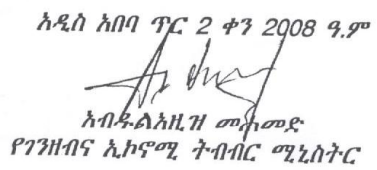 አዲስ አበባ ጥር 2 ቀን 2008 ዓ.ም
አብዱልአዚዝ መሐመድ
የገንዘብና ኢኮኖሚ ትብብር ሚኒስትር